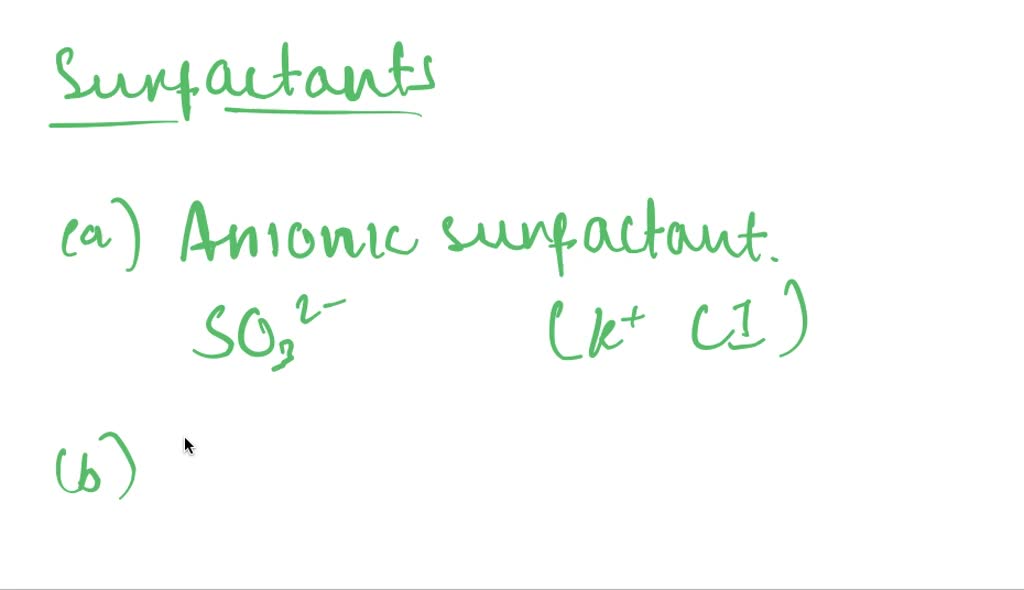 Surfactants
(a) Anionic surfactant.
SO₃²⁻ (K⁺ Cl)
(b)